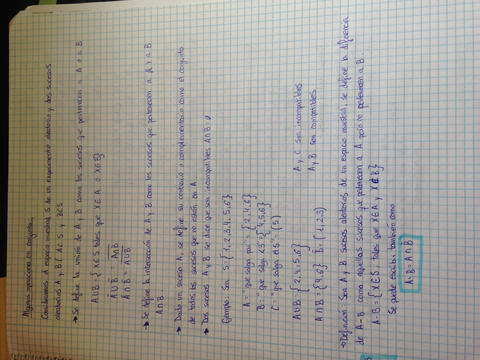 Algunas operaciones en conjuntos:
Consideramos el espacio muestral S de un experimento aleatorio y dos sucesos
aleatorios A y B ( A⊂S y B⊂S
→ Se define la unión de A y B como los sucesos que pertenecen a A o a B
A∪B = { X∈S tales que X∈A o X∈B}
A∪B = A∩B
A∩B = A∪B
→ Se define la intersección de A y B como los sucesos que pertenecen a A y a B
A∩B
→ Dado un suceso A, se define su contrario o complementario como el conjunto
de todos los sucesos que no están en A.
→ Dos sucesos A y B se dice que son incompatibles A∩B =
Ejemplo: Sea S = {1,2,3,4,5,6}
A = "que salga par" = {2,4,6}
B = "que salga {4,5,6}
C = "que salga = {5}
A∪B = {2,4,5,6} A y C son incompatibles
A∩B = {4,6} B = {1,2,3} A y B son compatibles
→ Definición: Sea A y B sucesos aleatorios de un espacio muestral, se define la diferencia
de A-B como aquellos sucesos que pertenecen a A pero no pertenecen a B.
A-B = {X∈S, tales que X∈A y X∉B}
Se puede escribir también como
A-B = A∩B̅